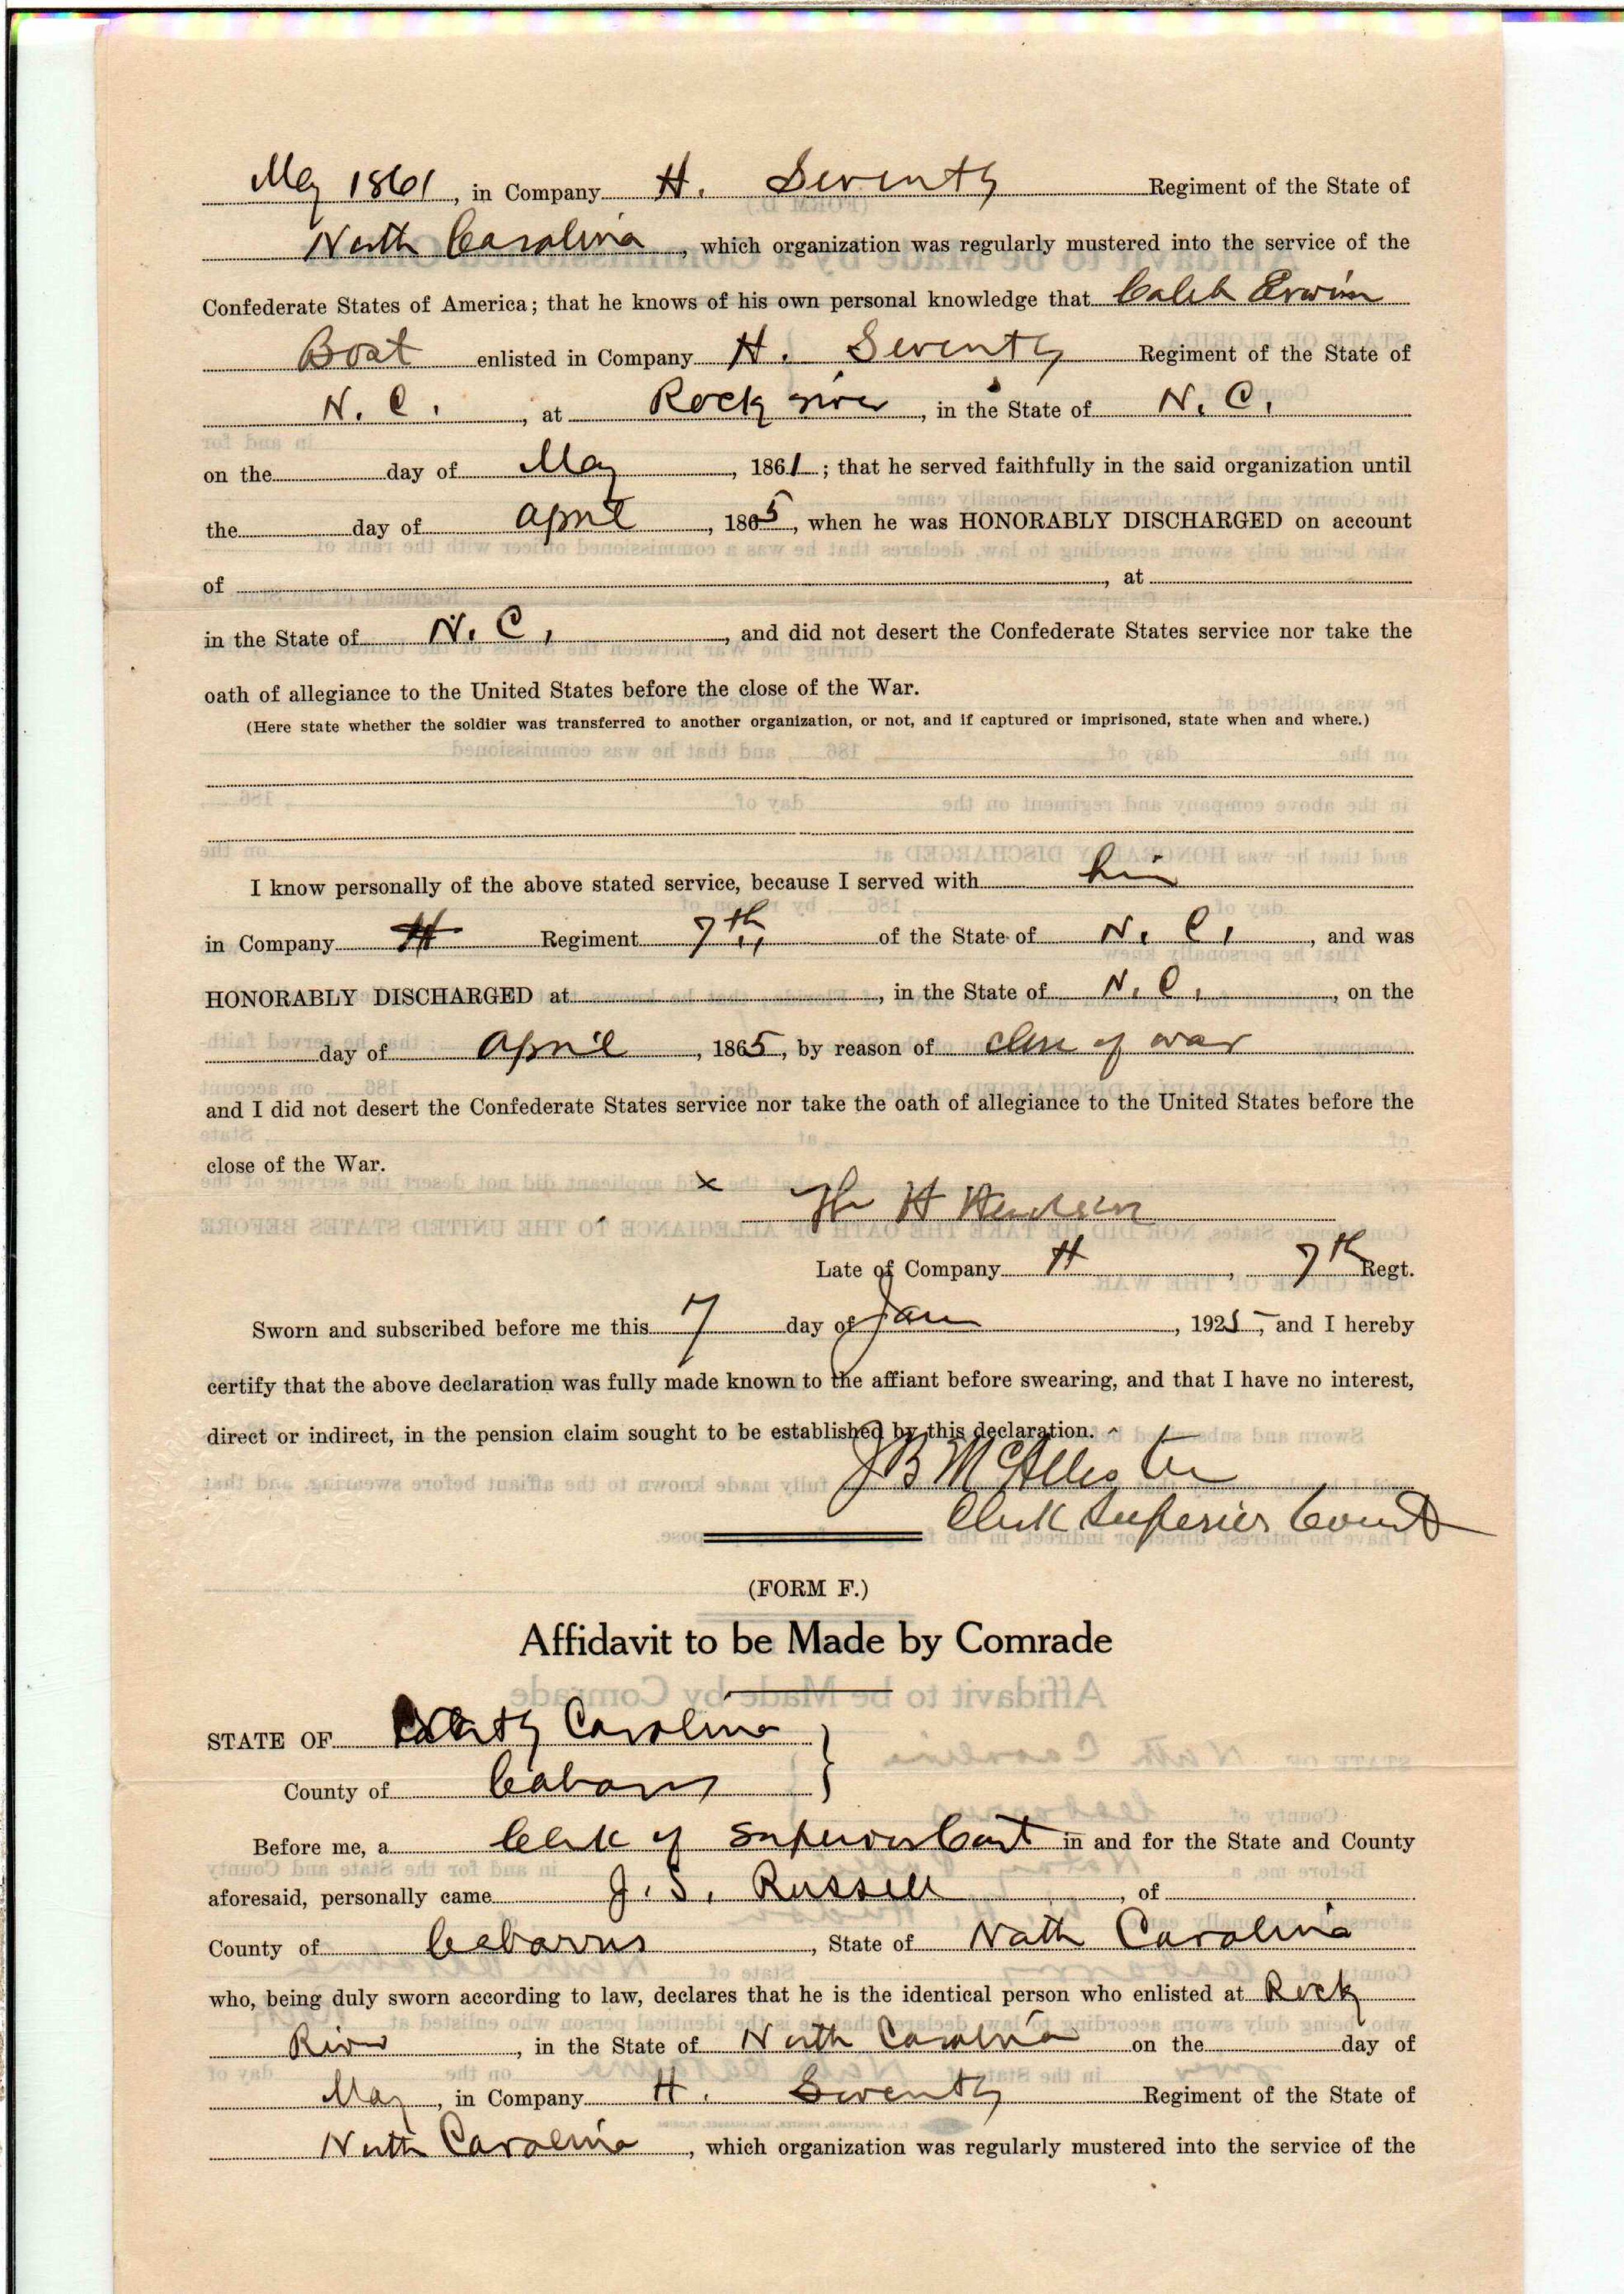 May 1861, in Company H. Seventh Regiment of the State of
North Carolina, which organization was regularly mustered into the service of the
Confederate States of America; that he knows of his own personal knowledge that Caleb Erwin
Bost enlisted in Company H. Seventh Regiment of the State of
N. C., at Rock river, in the State of N. C.
on the day of May, 1861; that he served faithfully in the said organization until
the day of April, 1865, when he was HONORABLY DISCHARGED on account
of , at
in the State of N. C., and did not desert the Confederate States service nor take the
oath of allegiance to the United States before the close of the War.
(Here state whether the soldier was transferred to another organization, or not, and if captured or imprisoned, state when and where.)
I know personally of the above stated service, because I served with him
in Company H Regiment 7th of the State of N. C., and was
HONORABLY DISCHARGED at , in the State of N. C., on the
day of April, 1865, by reason of close of war
and I did not desert the Confederate States service nor take the oath of allegiance to the United States before the
close of the War.
x H
Late of Company H, 7th Regt.
Sworn and subscribed before me this 7 day of Jan, 192 , and I hereby
certify that the above declaration was fully made known to the affiant before swearing, and that I have no interest,
direct or indirect, in the pension claim sought to be established by this declaration.
J B McAllister
Clerk Superior Court
(FORM F.)
Affidavit to be Made by Comrade
STATE OF North Carolina
County of Cabarrus
Before me, a Clerk of Superior Court in and for the State and County
aforesaid, personally came J. S. Russell, of
County of Cabarrus, State of North Carolina
who, being duly sworn according to law, declares that he is the identical person who enlisted at Rock
River, in the State of North Carolina on the day of
May, in Company H. Seventh Regiment of the State of
North Carolina, which organization was regularly mustered into the service of the